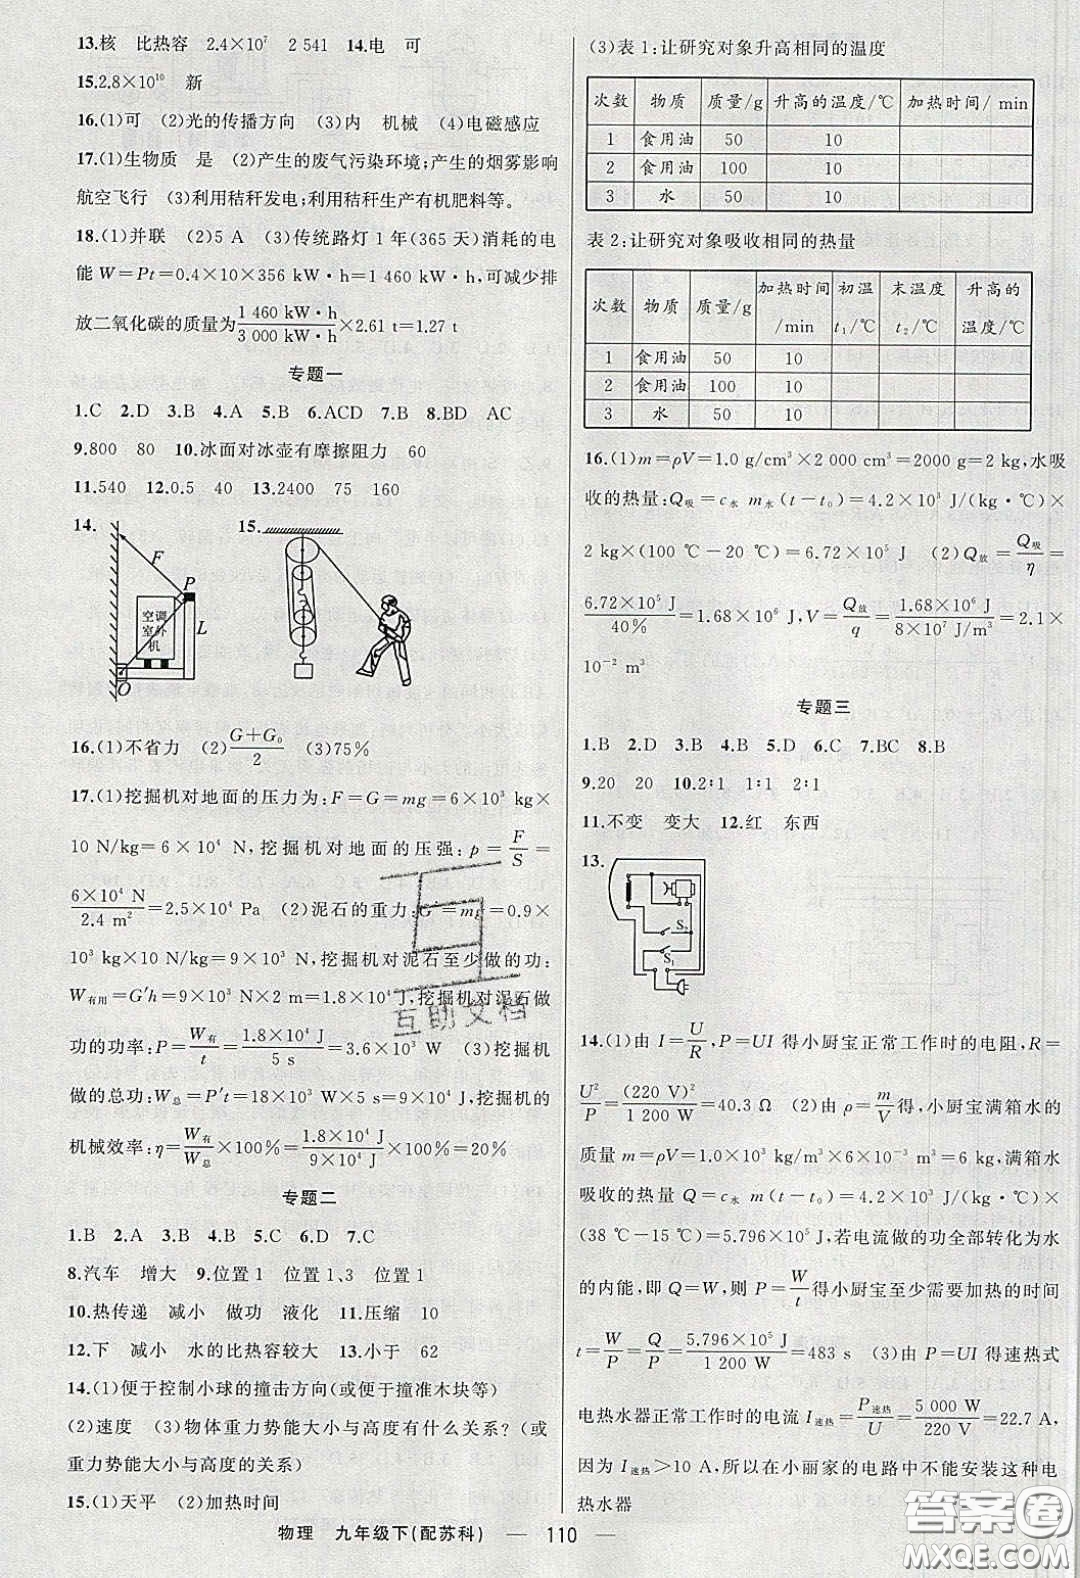 13.核 比热容 2.4×10⁷ 2 541 14.电 可
15.2.8×10¹⁰ 新
16.(1)可 (2)光的传播方向 (3)内 机械 (4)电磁感应
17.(1)生物质 是 (2)产生的废气污染环境;产生的烟雾影响
航空飞行 (3)利用秸秆发电;利用秸秆生产有机肥料等。
18.(1)并联 (2)5 A (3)传统路灯1年(365天)消耗的电
能W=Pt=0.4×10×356 kW·h=1 460 kW·h,可减少排
放二氧化碳的质量为1 460 kW·h/3 000 kW·h×2.61 t=1.27 t
专题一
1.C 2.D 3.B 4.A 5.B 6.ACD 7.B 8.BD AC
9.800 80 10.冰面对冰壶有摩擦阻力 60
11.540 12.0.5 40 13.2400 75 160
14. 15.
F
P
空调
室外
机
L
O
16.(1)不省力 (2)(G+G₀)/2 (3)75%
17.(1)挖掘机对地面的压力为:F=G=mg=6×10³ kg×
10 N/kg=6×10⁴ N,挖掘机对地面的压强:p=F/S=
6×10⁴ N/2.4 m²=2.5×10⁴ Pa (2)泥石的重力:G′=mg=0.9×
10³ kg×10 N/kg=9×10³ N,挖掘机对泥石至少做的功:
W有用=G′h=9×10³ N×2 m=1.8×10⁴ J,挖掘机对泥石做
功的功率:P=W有/t=1.8×10⁴ J/5 s=3.6×10³ W (3)挖掘机
做的总功:W总=P′t=18×10³ W×5 s=9×10⁴ J,挖掘机的
机械效率:η=W有/W总×100%=1.8×10⁴ J/9×10⁴ J×100%=20%
专题二
1.B 2.A 3.B 4.B 5.C 6.D 7.C
8.汽车 增大 9.位置1 位置1、3 位置1
10.热传递 减小 做功 液化 11.压缩 10
12.下 减小 水的比热容较大 13.小于 62
14.(1)便于控制小球的撞击方向(或便于撞准木块等)
(2)速度 (3)物体重力势能大小与高度有什么关系?(或
重力势能大小与高度的关系)
15.(1)天平 (2)加热时间
(3)表1:让研究对象升高相同的温度
次数 物质 质量/g 升高的温度/℃ 加热时间/ min
1 食用油 50 10
2 食用油 100 10
3 水 50 10
表2:让研究对象吸收相同的热量
次数 物质 质量/g 加热时间/min 初温t₁/℃ 末温度t₂/℃ 升高的温度/℃
1 食用油 50 10
2 食用油 100 10
3 水 50 10
16.(1)m=ρV=1.0 g/cm³×2 000 cm³=2000 g=2 kg,水吸
收的热量:Q吸=c水 m水(t-t₀)=4.2×10³ J/(kg·℃)×
2 kg×(100 ℃-20 ℃)=6.72×10⁵ J (2)Q放=Q吸/η=
6.72×10⁵ J/40%=1.68×10⁶ J,V=Q放/q=1.68×10⁶ J/8×10⁷ J/m³=2.1×
10⁻² m³
专题三
1.B 2.D 3.B 4.B 5.D 6.C 7.BC 8.B
9.20 20 10.2∶1 1∶1 2∶1
11.不变 变大 12.红 东西
13.
S₂
S₁
14.(1)由I=U/R,P=UI得小厨宝正常工作时的电阻,R=
U²/P=(220 V)²/1 200 W=40.3 Ω (2)由ρ=m/V得,小厨宝满箱水的
质量m=ρV=1.0×10³ kg/m³×6×10⁻³ m³=6 kg,满箱水
吸收的热量Q=c水 m(t-t₀)=4.2×10³ J/(kg·℃)×6 kg×
(38 ℃-15 ℃)=5.796×10⁵ J,若电流做的功全部转化为水
的内能,即Q=W,则P=W/t得小厨宝至少需要加热的时间
t=W/P=Q/P=5.796×10⁵ J/1 200 W=483 s (3)由P=UI得速热式
电热水器正常工作时的电流I速热=P速热/U=5 000 W/220 V=22.7 A,
因为I速热>10 A,所以在小丽家的电路中不能安装这种电
热水器
物理 九年级下(配苏科) — 110 —
互助文档
答案圈
MXQE.COM